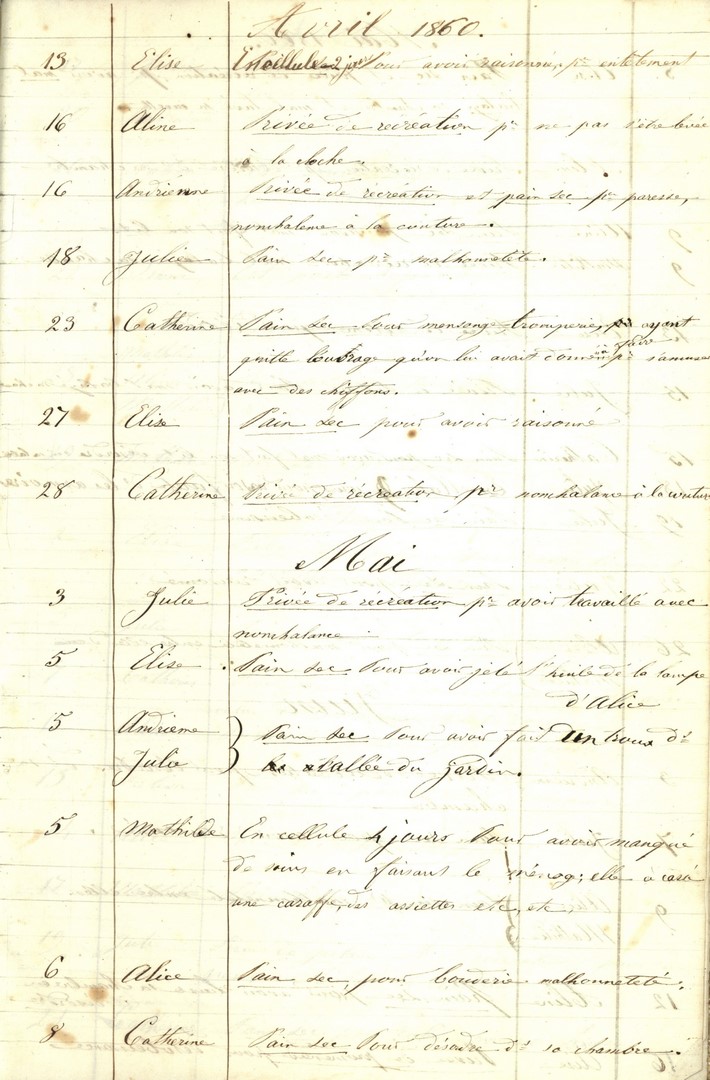 Avril 1860.
13 Elise En cellule 2 jours Pour avoir raisonné, pr entêtement
16 Aline Privée de recréation pr ne pas s'être levée
à la cloche.
16 Andrienne Privée de recréation et pain sec pr paresse,
nonchalence à la couture.
18 Julie Pain sec pr malhonnetêté.
23 Catherine Pain sec Pour mensonge tromperie, pr ayant
quitté l'ouvrage qu'on lui avait donné à faire pr s'amuser
avec des chiffons.
27 Elise Pain sec pour avoir raisonné
28 Catherine Privé de récréation pr nonchalance à la couture
Mai
3 Julie Privée de récréation pr avoir travaillé avec
nonchalance.
5 Elise Pain sec Pour avoir jeté l'huile de la lampe
d'Alice
5 Andrienne } Pain sec Pour avoir fait un trou ds
Julie l'allée du jardin.
5 Mathilde En cellule 4 jours Pour avoir manqué
de soins en faisant le ménag; elle a cassé
une caraffe, des assiettes etc, etc,
6 Alice Pain sec, pour bouderie malhonneteté.
8 Catherine Pain sec Pour désodre ds sa chambre.